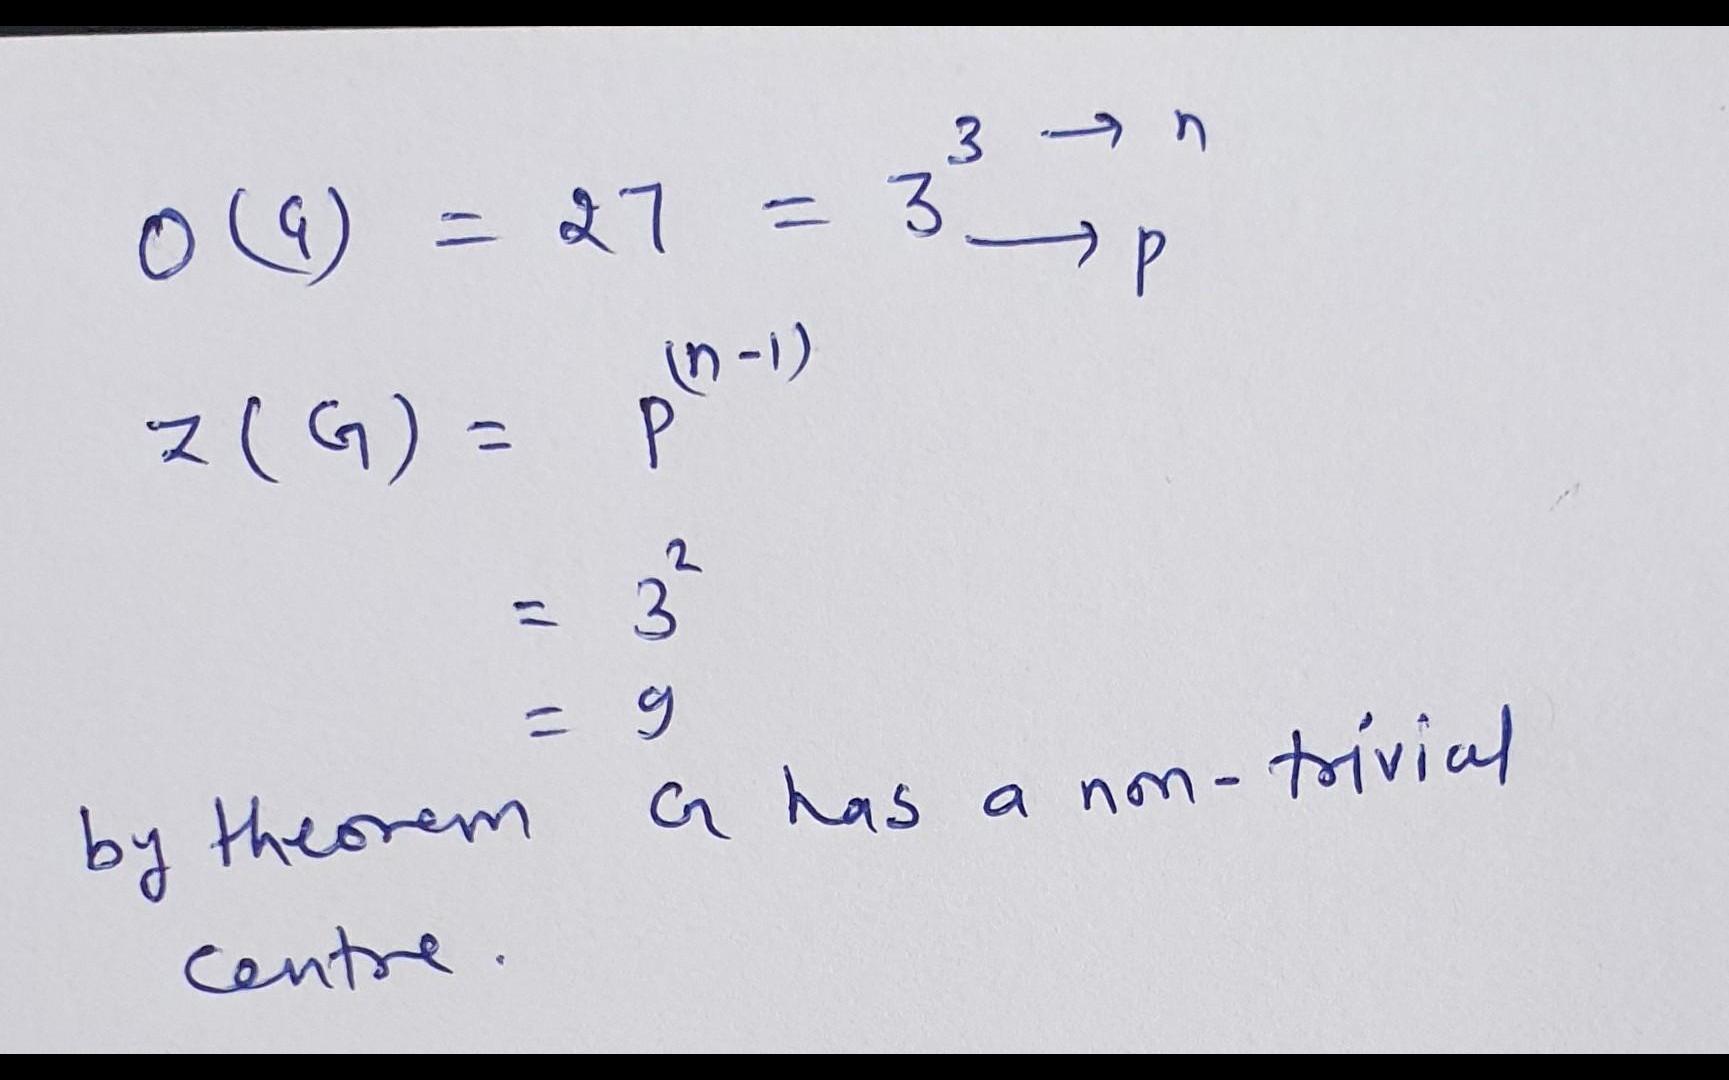 O(G) = 27 = 3^3 → n
→ p
z(G) = p^(n-1)
= 3^2
= 9
by theorem G has a non-trivial
centre.